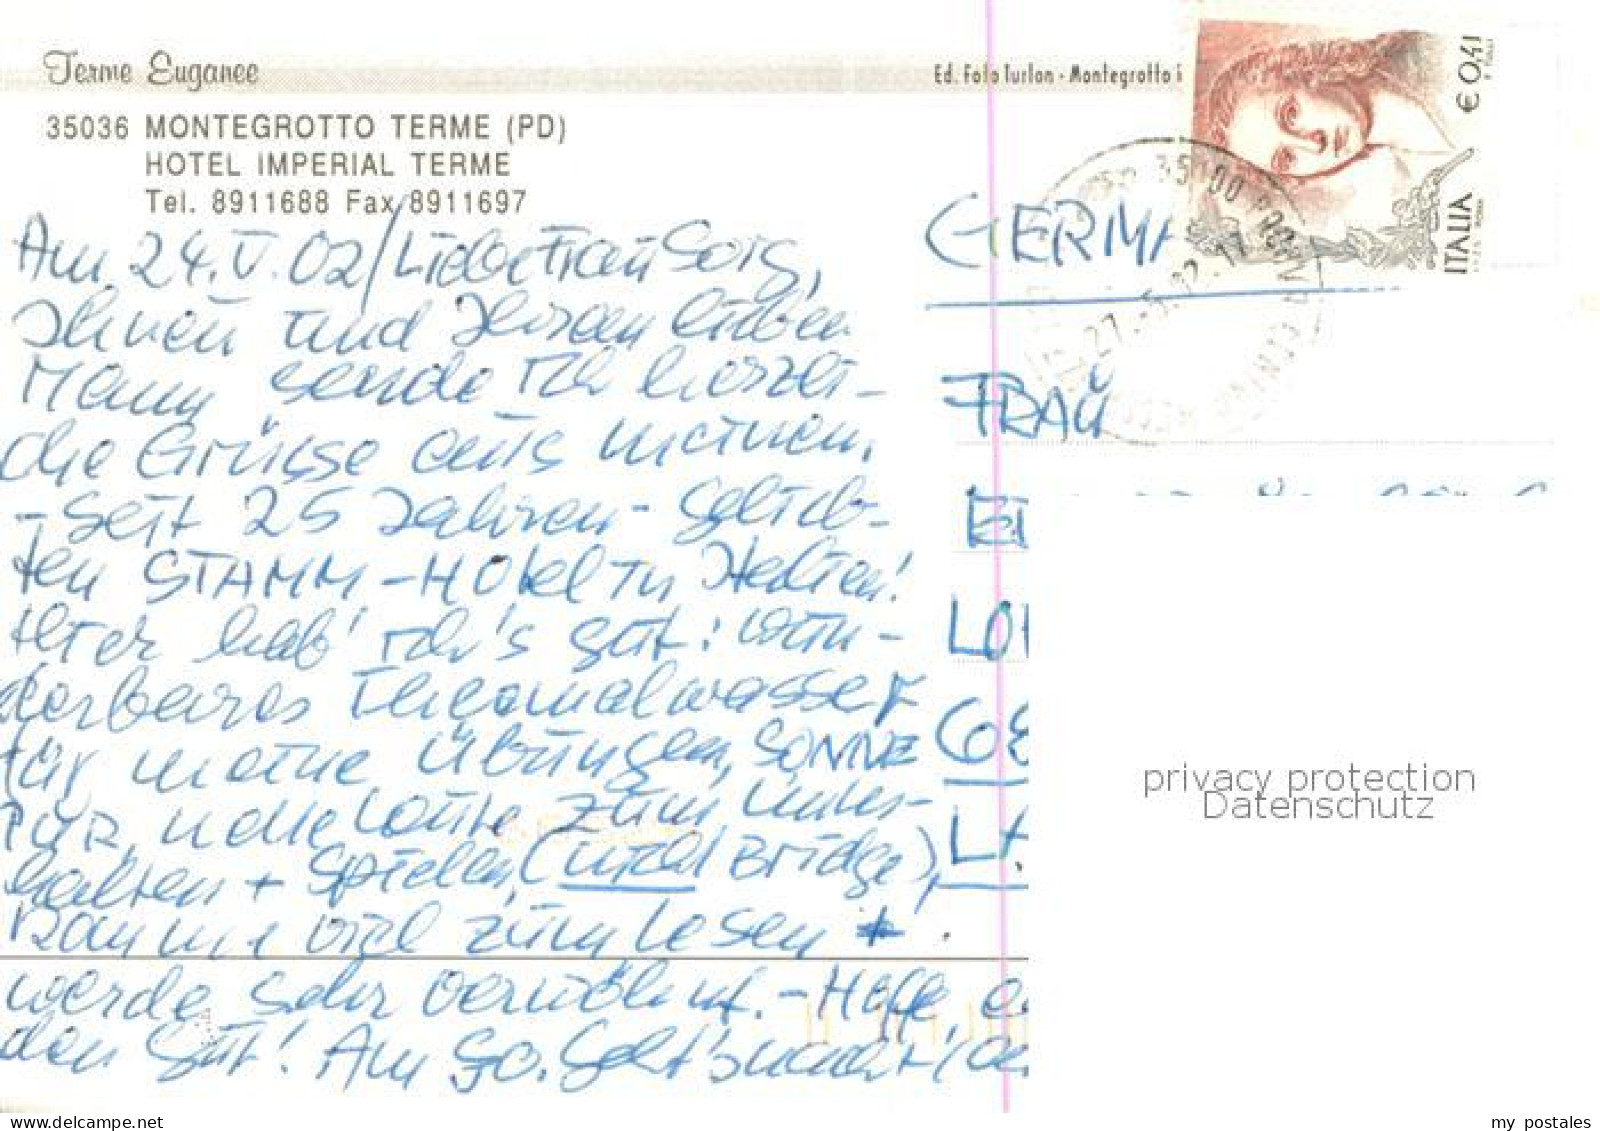 Terme Euganee
Ed. Foto Turlon - Montegrotto
€ 0,41
ITALIA
35036 MONTEGROTTO TERME (PD)
HOTEL IMPERIAL TERME
Tel. 8911688 Fax 8911697
Am 24.V.02/Liebe Frau Sorg,
Ihnen und Ihrem lieben
Mann sende ich herzli-
che Grüsse aus meinem,
- seit 25 Jahren - gelieb-
ten STAMM-HOtel in Italien!
Hier hab' ich's gut: wun-
derbares Thermalwasser
für meine Übungen, SONNE
PUR, nette Leute zum Unter-
halten + Spielen, (nicht Bridge),
kann viel zum Lesen +
werde sehr verwöhnt. - Hoffe, e
den gut! Am 30. geht's
GERMA
FRAU
LO
L
35100
27.-5.02.17
privacy protection
Datenschutz
delcampe.net
my_postales